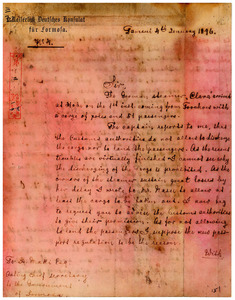 Kaiserlich Deutsches Konsulat
für Formosa.
Tamsui 4th January 1896.
Sir,
The German steamer "Clara" arrived
at Kelung on the 1st inst. coming from
cargo of poles and 81 passengers.
The captain reports to me, that
the customs authorities do not allow to discharge
the cargo nor to land the passengers. As the recent
troubles are virtually finished I cannot see why
the discharging of the cargo is prohibited. As the
owner of the steamer sustains great losses by
the delay I wrote to Mr. to allow at
least the cargo to be taken out. I now beg
to request you to advise the customs authorities
to give their permission. As for not allowing
to land the passengers I suppose the new pass-
port regulation to be the reason.
To
Acting Chief Secretary
to the Government
of Formosa.